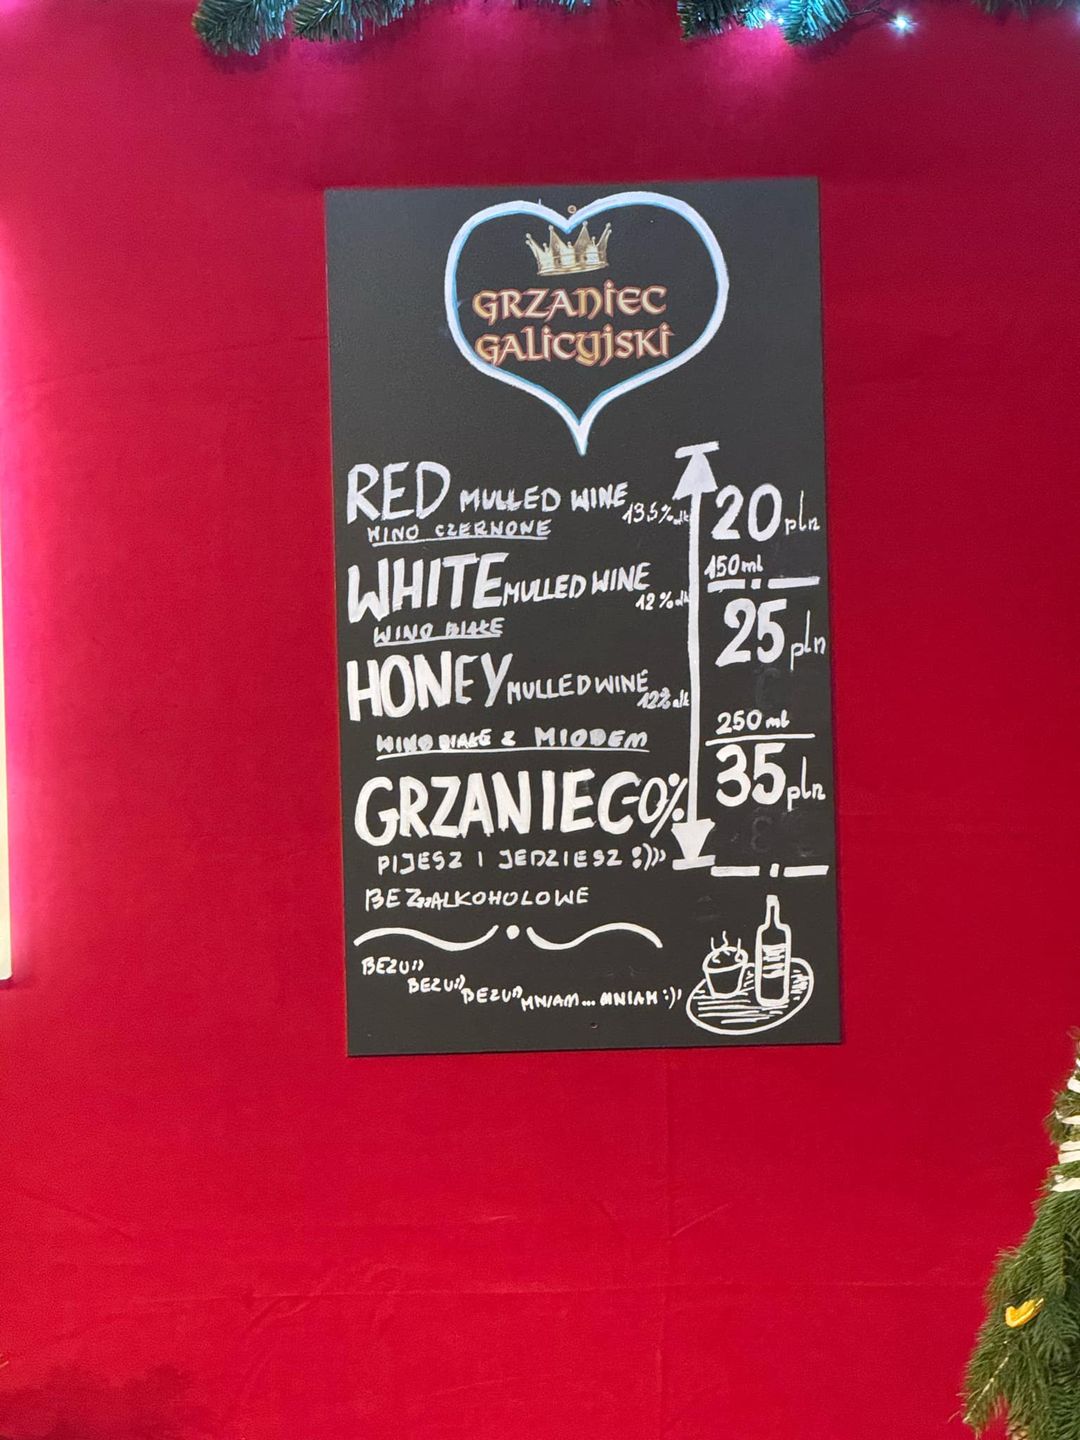 GRZANIEC
GALICYJSKI
RED MULLED WINE 13,5% alk
WINO CZERWONE
WHITE MULLED WINE 12% alk
WINO BIAŁE
HONEY MULLED WINE 12% alk
WINO BIAŁE Z MIODEM
GRZANIEC-0%
PIJESZ I JEDZIESZ :)))
BEZ„ALKOHOLOWE
20 pln
150 ml
25 pln
250 ml
35 pln
BEZU))
BEZU))
BEZU))
MNIAM... MNIAM :))